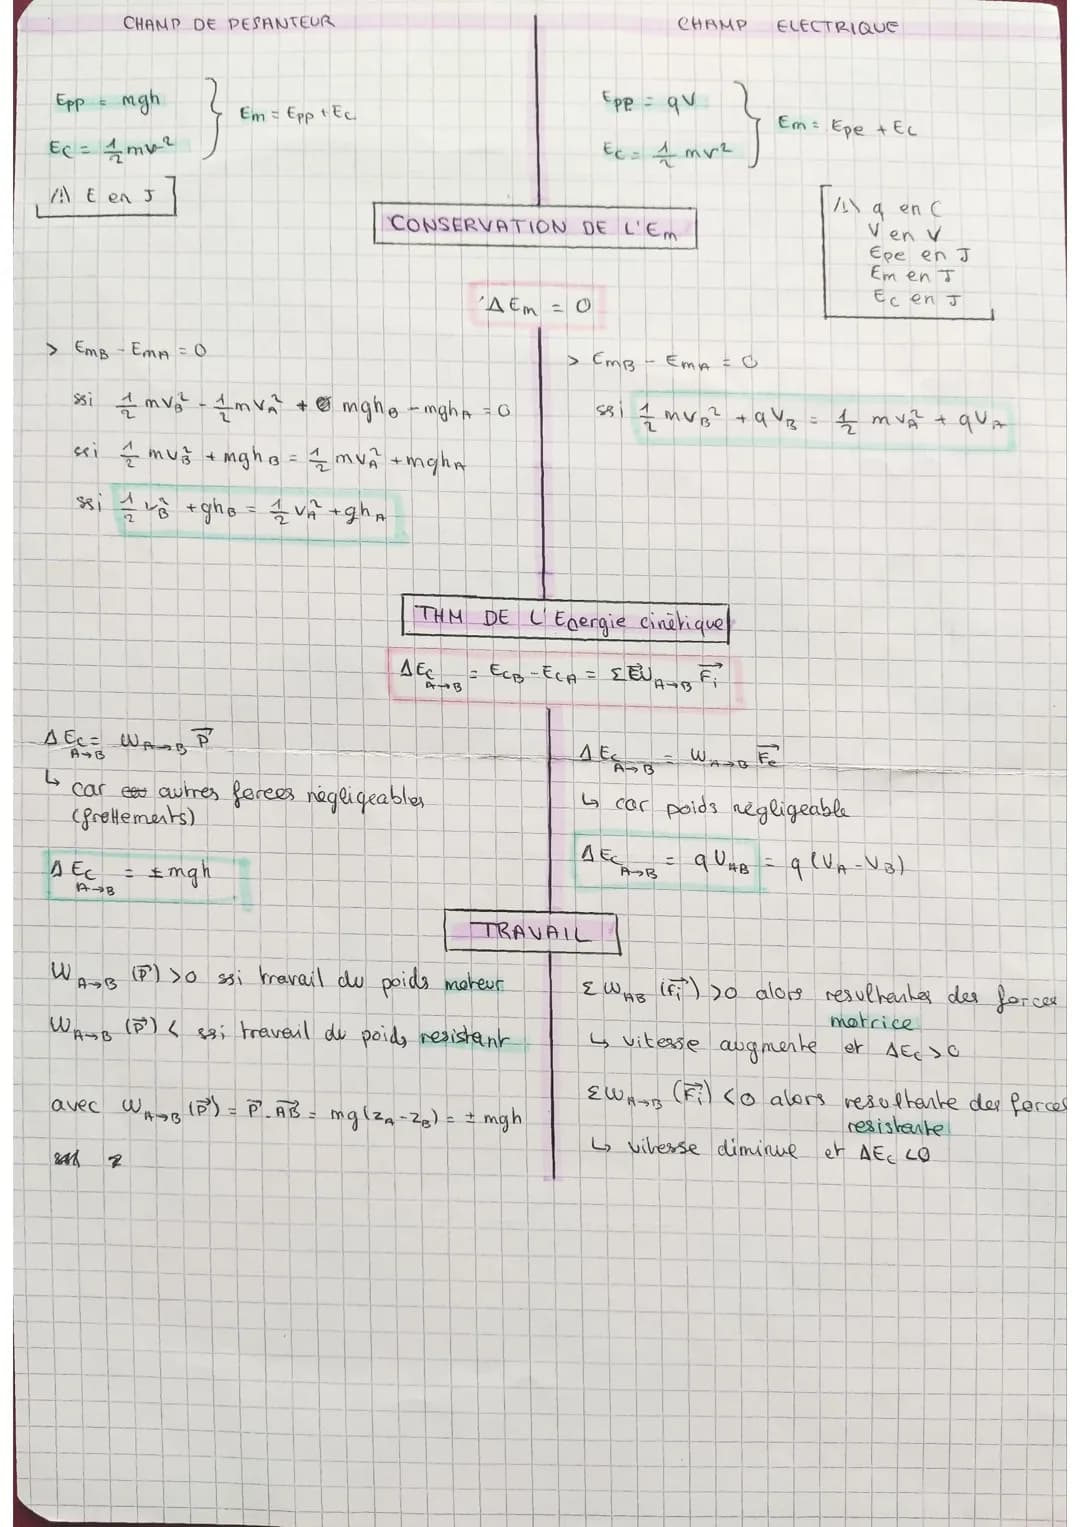 CHAMP DE PESANTEUR
Epp = mgh
Ec = 1/2 mv²
Em = Epp + Ec
/!\ E en J
CHAMP ELECTRIQUE
Epe = qV
Ec = 1/2 mv²
Em = Epe + Ec
/!\ q en C
V en V
Epe en J
Em en J
Ec en J
CONSERVATION DE L'Em
ΔEm = 0
> EmB - EmA = 0
ssi 1/2 mvB² - 1/2 mvA² + mghB - mghA = 0
ssi 1/2 mvB² + mghB = 1/2 mvA² + mghA
ssi 1/2 vB² + ghB = 1/2 vA² + ghA
> EmB - EmA = 0
ssi 1/2 mvB² + qVB = 1/2 mvA² + qVA
THM DE L'Energie cinétique
ΔEc A→B = EcB - EcA = Σ W A→B F⃗i
ΔEc A→B = W A→B P⃗
↳ car autres forces négligeables
(frottements)
ΔEc A→B = ± mgh
ΔEc A→B = W A→B F⃗e
↳ car poids négligeable
ΔEc A→B = q UAB = q (VA - VB)
TRAVAIL
W A→B (P⃗) > 0 ssi travail du poids moteur
W A→B (P⃗) < ssi travail du poids resistant
avec W A→B (P⃗) = P⃗ . AB⃗ = mg (zA - zB) = ± mgh
z
Σ W AB (F⃗i) > 0 alors resultantes des forces
motrice
↳ vitesse augmente et ΔEc > 0
Σ W A→B (F⃗i) < 0 alors resultante des forces
resistante
↳ vitesse diminue et ΔEc < 0